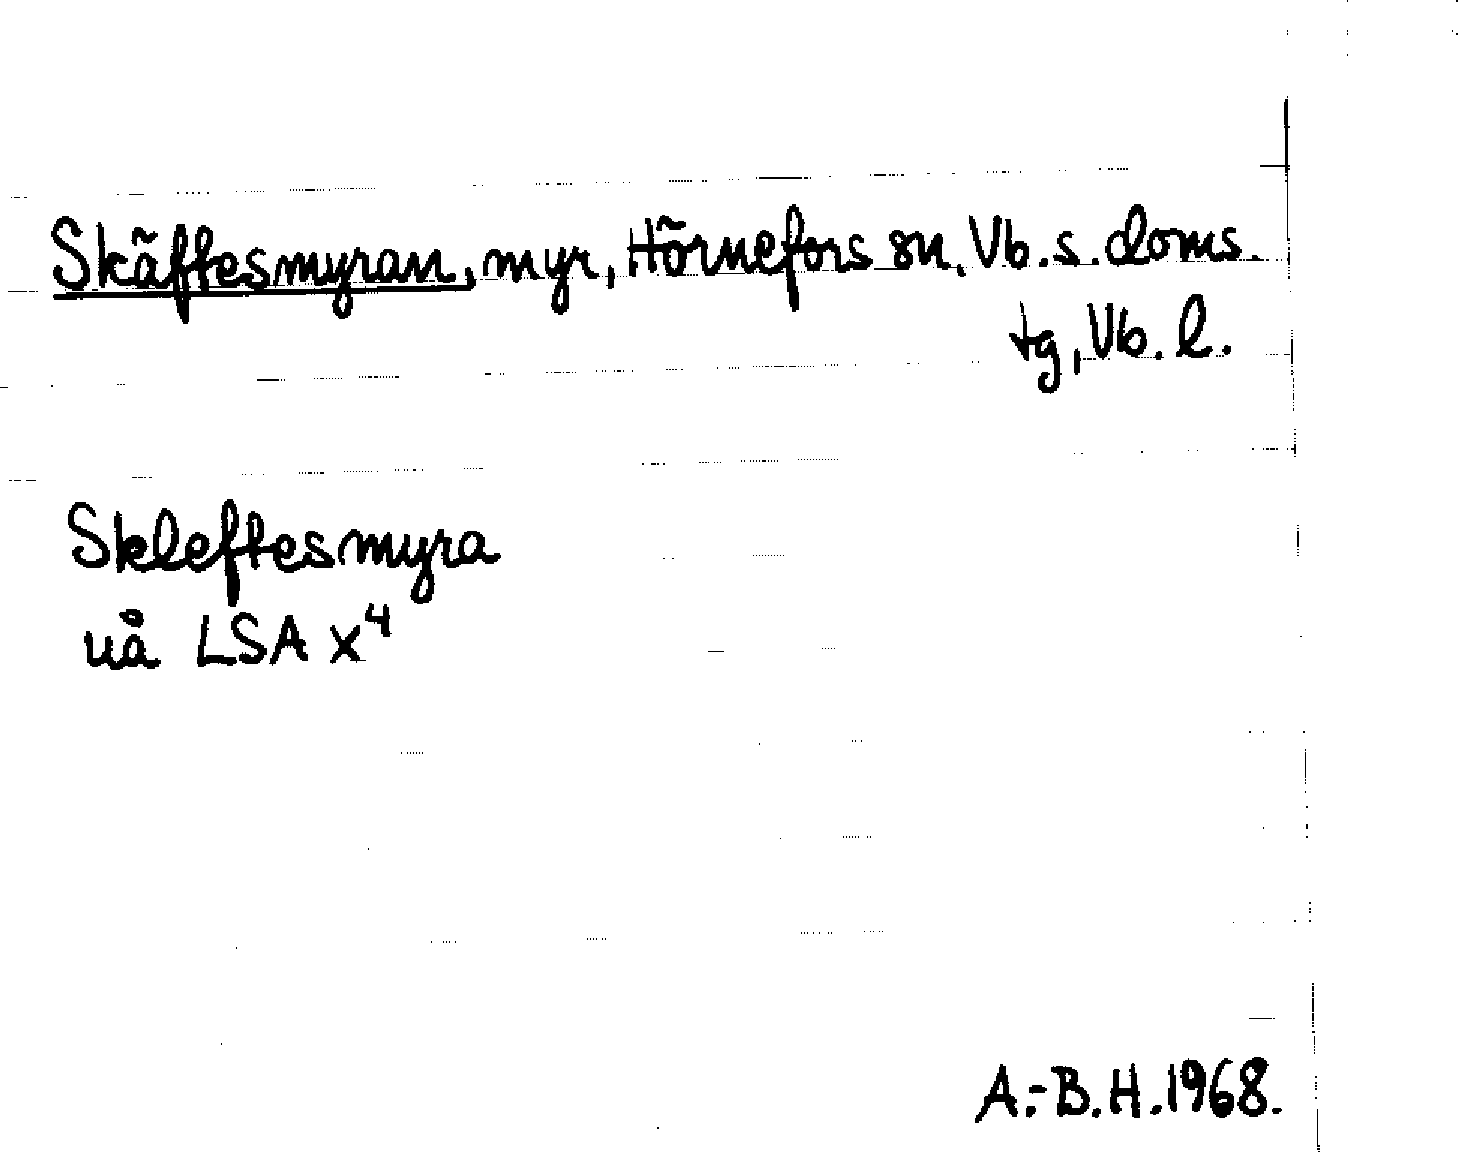 Skäftesmyran, myr, Hörnefors sn, Vb. s. doms.
tg, Vb. l.
Skleftesmyra
uå LSA x⁴
A.-B.H. 1968.